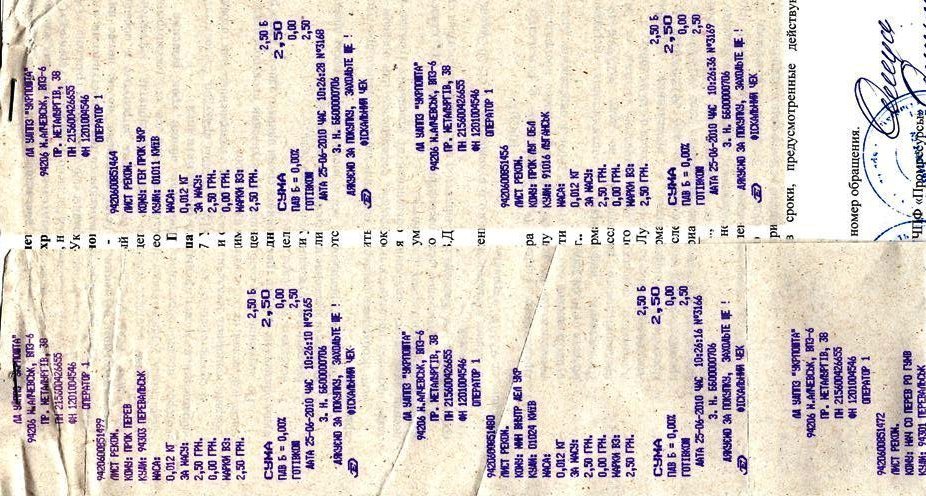 ЛД УДППЗ "УКРПОШТА"
94206 М.АЛЧЕВСЬК, ВПЗ-6
ПР. МЕТАЛУРГІВ, 38
ПН 215600426655
ФН 1201004546
ОПЕРАТОР 1
9420600851464
ЛИСТ РЕКОМ.
КОМУ: ГЕН ПРОК УКР
КУДИ: 01011 КИЕВ
МАСА:
0,012 КГ
ЗА МАСУ:
2,50 ГРН.
0,00 ГРН.
МАРКИ ВЗ:
2,50 ГРН.
2,50 Б
СУМА 2,50
ПДВ Б = 0,00% 0,00
ГОТІВКОЮ 2,50
ДАТА 25-06-2010 ЧАС 10:26:28 №3168
З. Н. 6600000706
ДЯКУЄМО ЗА ПОКУПКУ, ЗАХОДЬТЕ ЩЕ !
ФІСКАЛЬНИЙ ЧЕК
ЛД УДППЗ "УКРПОШТА"
94206 М.АЛЧЕВСЬК, ВПЗ-6
ПР. МЕТАЛУРГІВ, 38
ПН 215600426655
ФН 1201004546
ОПЕРАТОР 1
9420600851456
ЛИСТ РЕКОМ.
КОМУ: ПРОК ЛУГ ОБЛ
КУДИ: 91016 ЛУГАНСЬК
МАСА:
0,012 КГ
ЗА МАСУ:
2,50 ГРН.
0,00 ГРН.
МАРКИ ВЗ:
2,50 ГРН.
2,50 Б
СУМА 2,50
ПДВ Б = 0,00% 0,00
ГОТІВКОЮ 2,50
ДАТА 25-06-2010 ЧАС 10:26:36 №3169
З. Н. 6600000706
ДЯКУЄМО ЗА ПОКУПКУ, ЗАХОДЬТЕ ЩЕ !
ФІСКАЛЬНИЙ ЧЕК
сроки, предусмотренные
номер обращения.
ЛД УДППЗ "УКРПОШТА"
94206 М.АЛЧЕВСЬК, ВПЗ-6
ПР. МЕТАЛУРГІВ, 38
ПН 215600426655
ФН 1201004546
ОПЕРАТОР 1
9420600851499
ЛИСТ РЕКОМ.
КОМУ: ПРОК ПЕРЕВ
КУДИ: 94303 ПЕРЕВАЛЬСЬК
МАСА:
0,012 КГ
ЗА МАСУ:
2,50 ГРН.
0,00 ГРН.
МАРКИ ВЗ:
2,50 ГРН.
2,50 Б
СУМА 2,50
ПДВ Б = 0,00% 0,00
ГОТІВКОЮ 2,50
ДАТА 25-06-2010 ЧАС 10:26:10 №3165
З. Н. 6600000706
ДЯКУЄМО ЗА ПОКУПКУ, ЗАХОДЬТЕ ЩЕ !
ФІСКАЛЬНИЙ ЧЕК
ЛД УДППЗ "УКРПОШТА"
94206 М.АЛЧЕВСЬК, ВПЗ-6
ПР. МЕТАЛУРГІВ, 38
ПН 215600426655
ФН 1201004546
ОПЕРАТОР 1
9420600851480
ЛИСТ РЕКОМ.
КОМУ: МИН ВНУТР ДЕЛ УКР
КУДИ: 01024 КИЕВ
МАСА:
0,012 КГ
ЗА МАСУ:
2,50 ГРН.
0,00 ГРН.
МАРКИ ВЗ:
2,50 ГРН.
2,50 Б
СУМА 2,50
ПДВ Б = 0,00% 0,00
ГОТІВКОЮ 2,50
ДАТА 25-06-2010 ЧАС 10:26:16 №3166
З. Н. 6600000706
ДЯКУЄМО ЗА ПОКУПКУ, ЗАХОДЬТЕ ЩЕ !
ФІСКАЛЬНИЙ ЧЕК
ЛД УДППЗ "УКРПОШТА"
94206 М.АЛЧЕВСЬК, ВПЗ-6
ПР. МЕТАЛУРГІВ, 38
ПН 215600426655
ФН 1201004546
ОПЕРАТОР 1
9420600851472
ЛИСТ РЕКОМ.
КОМУ: НАЧ СО ПЕРЕВ РО ГУМВ
КУДИ: 94301 ПЕРЕВАЛЬСЬК